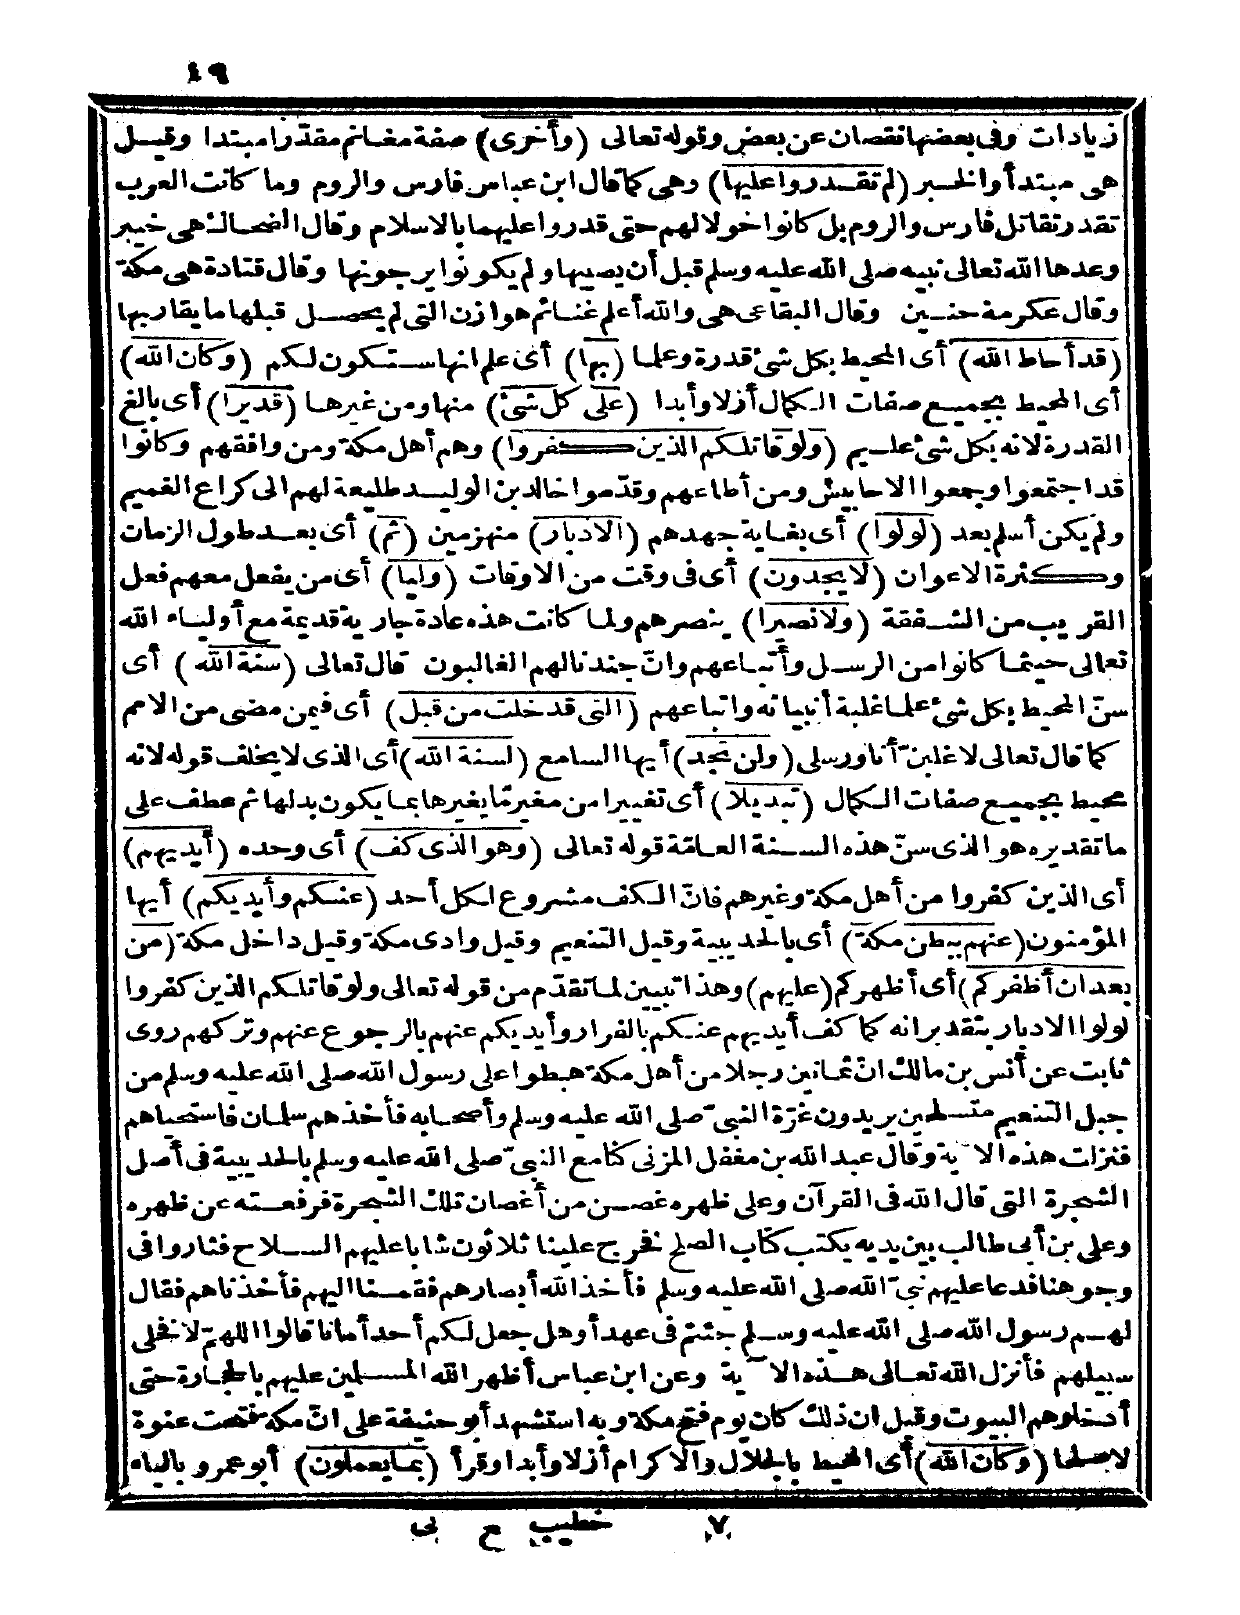 ٤٩
زيادات وفى بعضها نقصان عن بعض وقوله تعالى (وأخرى) صفة مغانم مقدّرا مبتدا وقيل
هى مبتدأ والخبر (لم تقدروا عليها) وهى كما قال ابن عباس فارس والروم وما كانت العرب
تقدر تقاتل فارس والروم بل كانوا خولا لهم حتى قدروا عليهما بالاسلام وقال الضحاك هى خيبر
وعدها الله تعالى نبيه صلى الله عليه وسلم قبل أن يصيبها ولم يكونوا يرجونها وقال قتادة هى مكة
وقال عكرمة حنين وقال البقاعى هى والله أعلم غنائم هوازن التى لم يحصل قبلها ما يقاربها
(قد أحاط الله) أى المحيط بكل شئ قدرة وعلما (بها) أى علم انها ستكون لكم (وكان الله)
أى المحيط بجميع صفات الكمال أزلا وأبدا (على كل شئ) منها ومن غيرها (قديرا) أى بالغ
القدرة لانه بكل شئ عليم (ولو قاتلكم الذين كفروا) وهم أهل مكة ومن وافقهم وكانوا
قد اجتمعوا وجمعوا الاحابيش ومن أطاعهم وقدّموا خالد بن الوليد طليعة لهم الى كراع الغميم
ولم يكن أسلم بعد (لولوا) أى بغاية جهدهم (الادبار) منهزمين (ثم) أى بعد طول الزمان
وكثرة الاعوان (لا يجدون) أى فى وقت من الاوقات (وليا) أى من يفعل معهم فعل
القريب من الشفقة (ولا نصيرا) ينصرهم ولما كانت هذه عادة جارية قديمة مع أولياء الله
تعالى حيثما كانوا من الرسل وأتباعهم وانّ جندنا لهم الغالبون قال تعالى (سنة الله) أى
سنّ المحيط بكل شئ علما غلبة أنبيائه واتباعهم (التى قد خلت من قبل) أى فيمن مضى من الامم
كما قال تعالى لاغلبنّ أنا ورسلى (ولن تجد) أيها السامع (لسنة الله) أى الذى لا يخلف قوله لانه
محيط بجميع صفات الكمال (تبديلا) أى تغييرا من مغير مّا يغيرها بما يكون بدلها ثم عطف على
ما تقديره هو الذى سنّ هذه السنة العامّة قوله تعالى (وهو الذى كف) أى وحده (أيديهم)
أى الذين كفروا من أهل مكة وغيرهم فانّ الكف مشروع لكل أحد (عنكم وأيديكم) أيها
المؤمنون (عنهم ببطن مكة) أى بالحديبية وقيل التنعيم وقيل وادى مكة وقيل داخل مكة (من
بعد ان أظفركم) أى أظهركم (عليهم) وهذا تبيين لما تقدّم من قوله تعالى ولو قاتلكم الذين كفروا
لولوا الادبار بتقدير انه كما كف أيديهم عنكم بالفرار وأيديكم عنهم بالرجوع عنهم وتركهم روى
ثابت عن أنس بن مالك انّ ثمانين رجلا من أهل مكة هبطوا على رسول الله صلى الله عليه وسلم من
جبل التنعيم متسلحين يريدون غرّة النبىّ صلى الله عليه وسلم وأصحابه فأخذهم سلمان فاستحياهم
فنزلت هذه الآية وقال عبد الله بن مغفل المزنى كنا مع النبىّ صلى الله عليه وسلم بالحديبية فى أصل
الشجرة التى قال الله فى القرآن وعلى ظهره غصن من أغصان تلك الشجرة فرفعته عن ظهره
وعلى بن أبى طالب بين يديه يكتب كتاب الصلح فخرج علينا ثلاثون شابا عليهم السلاح فثاروا فى
وجوهنا فدعا عليهم نبىّ الله صلى الله عليه وسلم فأخذ الله أبصارهم فقمنا اليهم فأخذناهم فقال
لهم رسول الله صلى الله عليه وسلم جئتم فى عهد أو هل جعل لكم أحد أمانا قالوا اللهمّ لا فخلى
سبيلهم فأنزل الله تعالى هذه الآية وعن ابن عباس أظهر الله المسلمين عليهم بالحجارة حتى
أدخلوهم البيوت وقيل ان ذلك كان يوم فتح مكة وبه استشهد أبو حنيفة على انّ مكة فتحت عنوة
لا صلحا (وكان الله) أى المحيط بالجلال والاكرام أزلا وأبدا وقرأ (بما يعملون) أبو عمرو بالياء
٧ خطيب ح بى